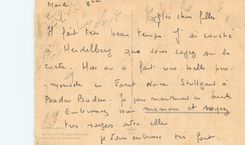 Mardi 8
Mes chères filles
Il fait très beau temps j'ai couché
à Heidelberg que vous voyez sur la
carte. Hier on a fait une belle pro-
menade en Forêt Noire Stuttgart à
Baden Baden. Je pars maintenant en
Embrassez bien maman et soyez
très sages avec elle
Je vous embrasse très fort